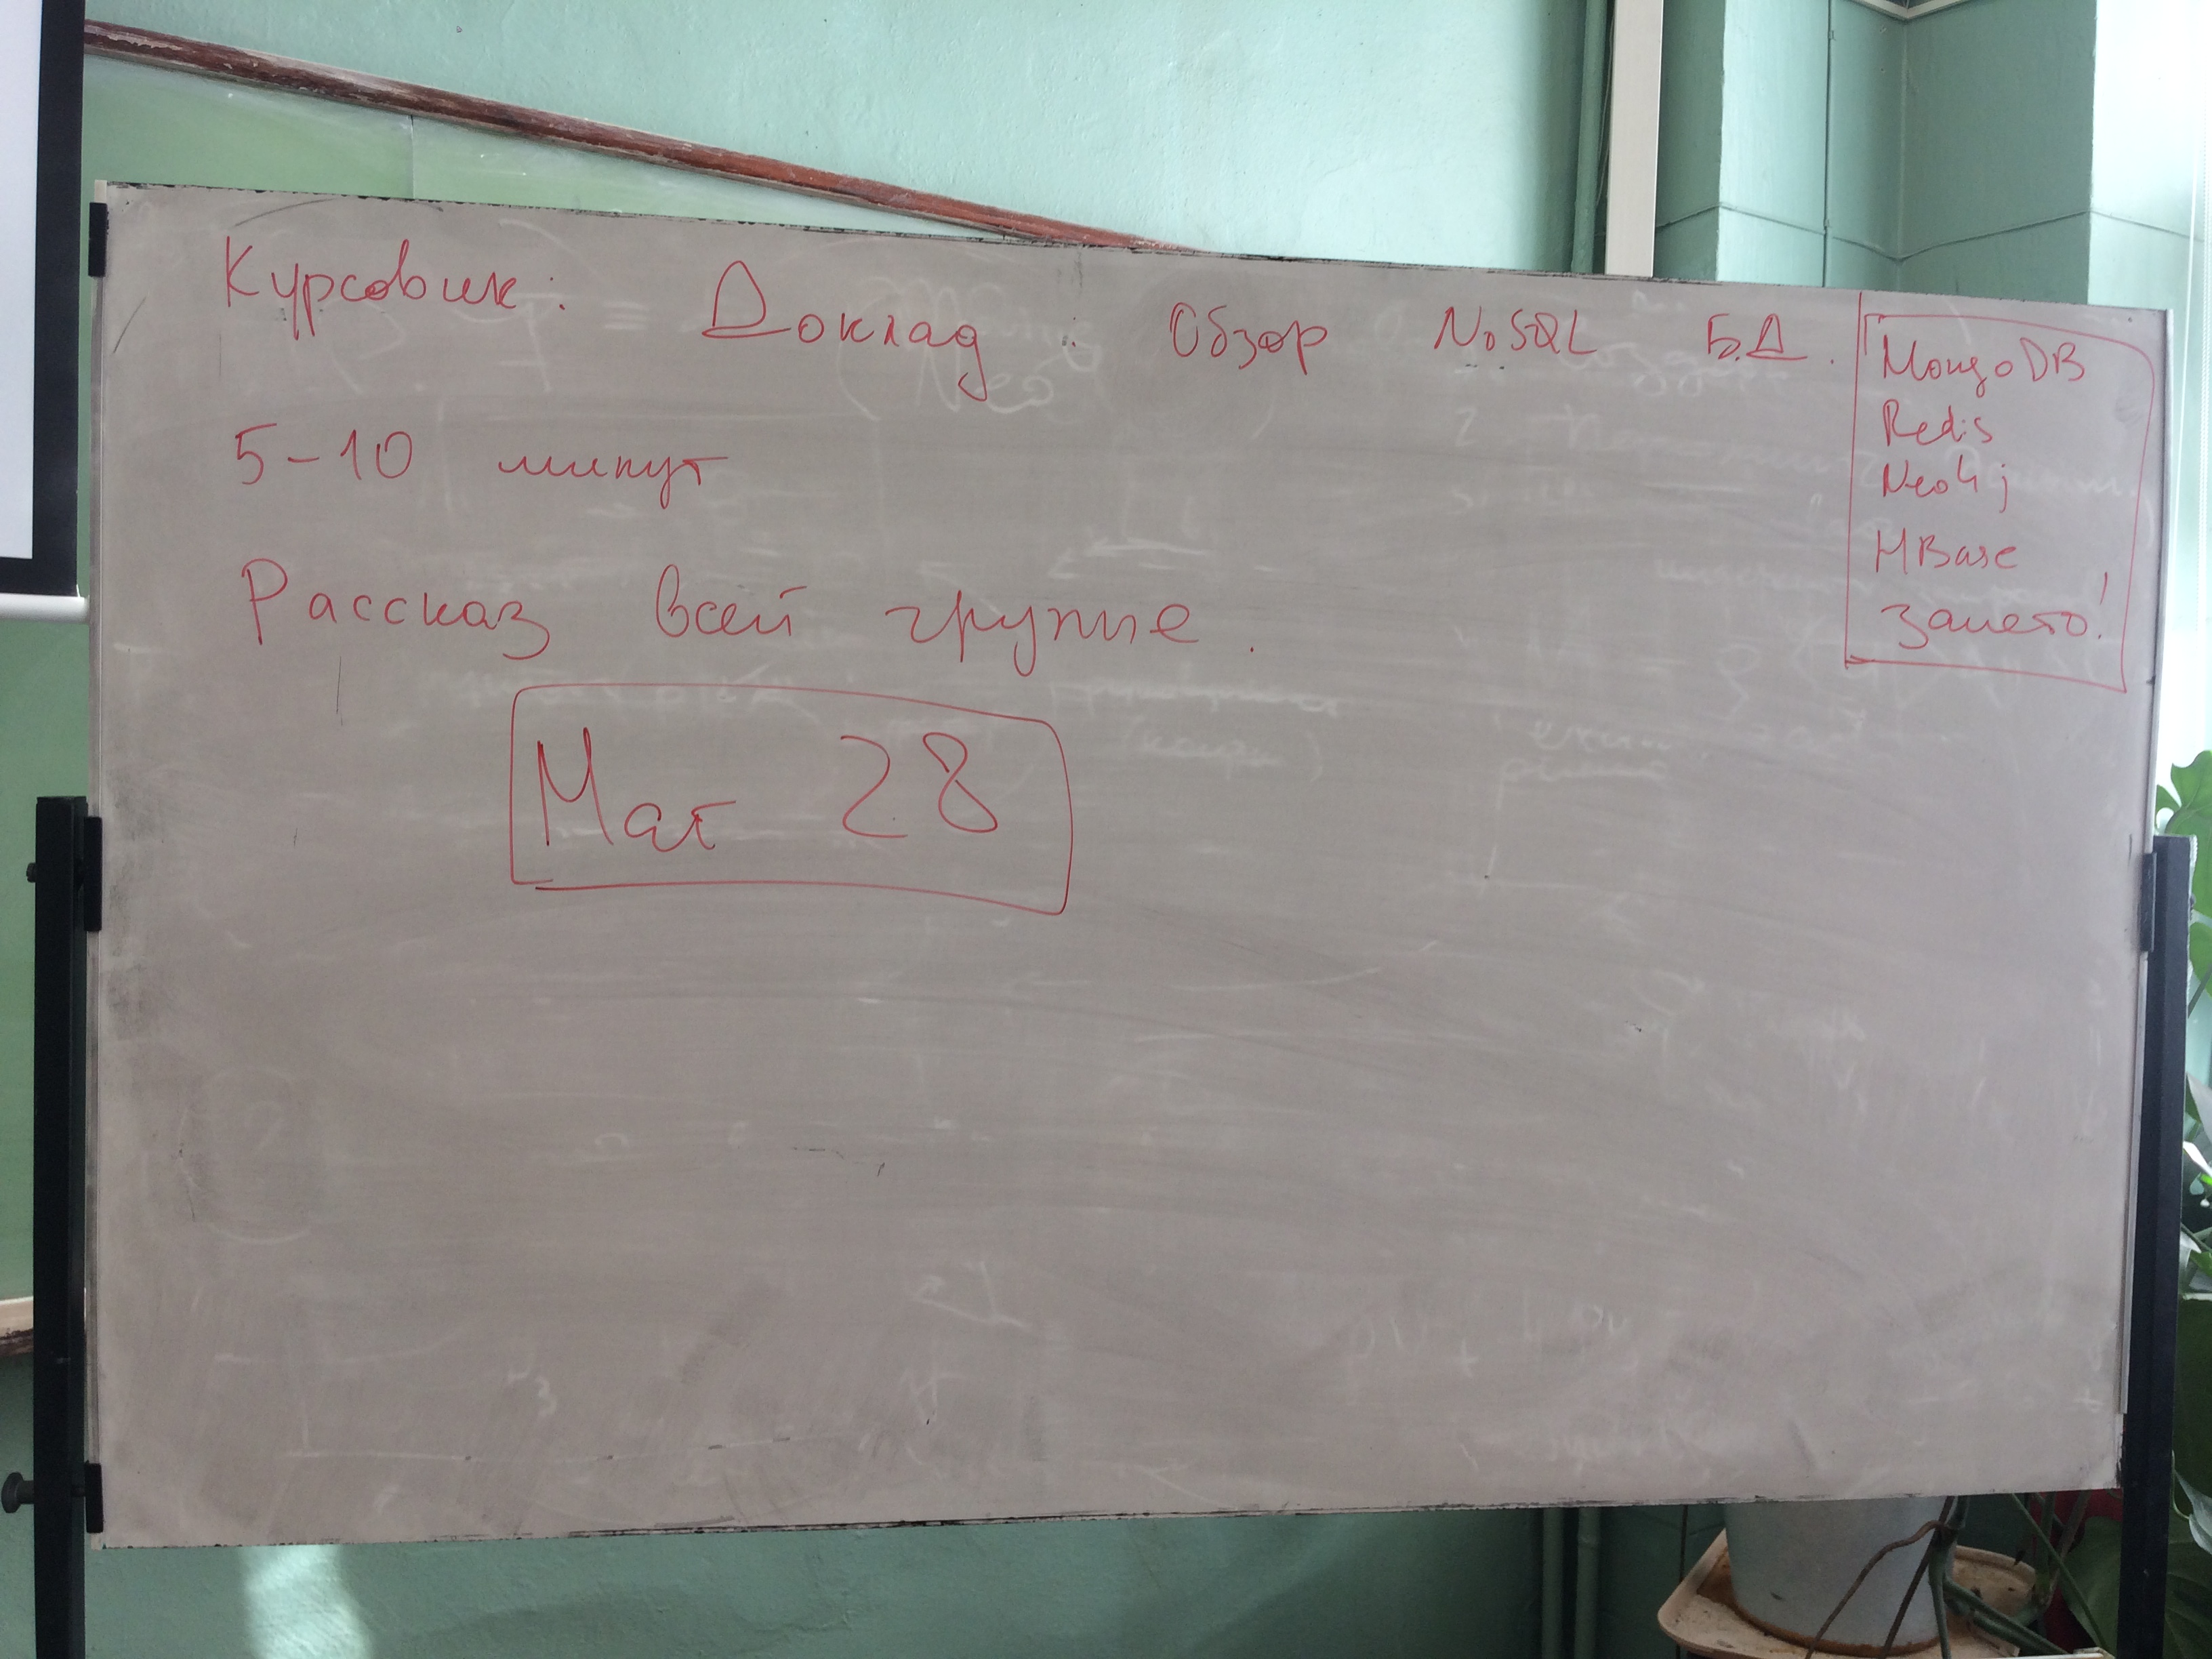 Курсовик: Доклад: Обзор NoSQL БД.
5-10 минут
Рассказ всей группе.
Mar 28
MongoDB
Redis
Neo4j
HBase
занято!